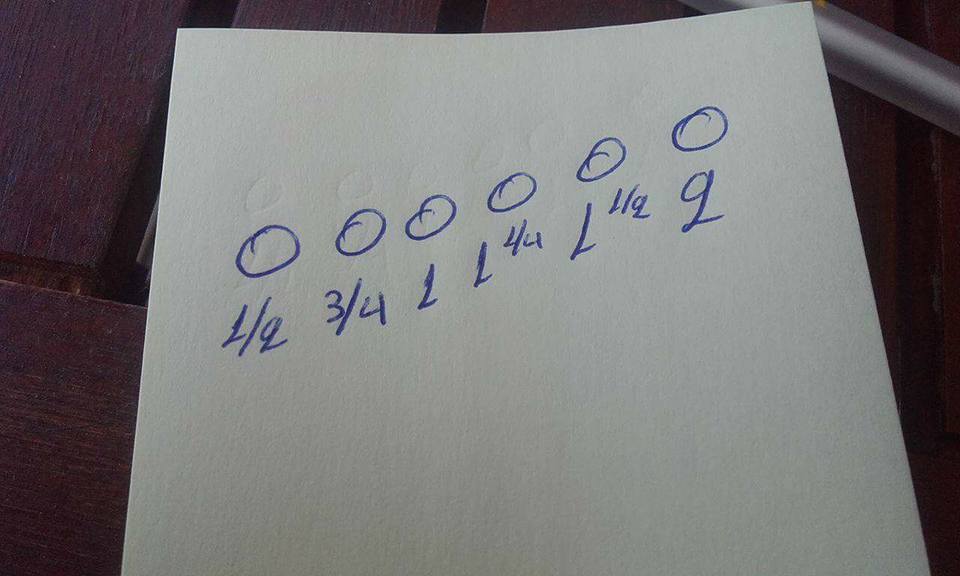 1/2 3/4 1 1 1/4 1 1/2 2